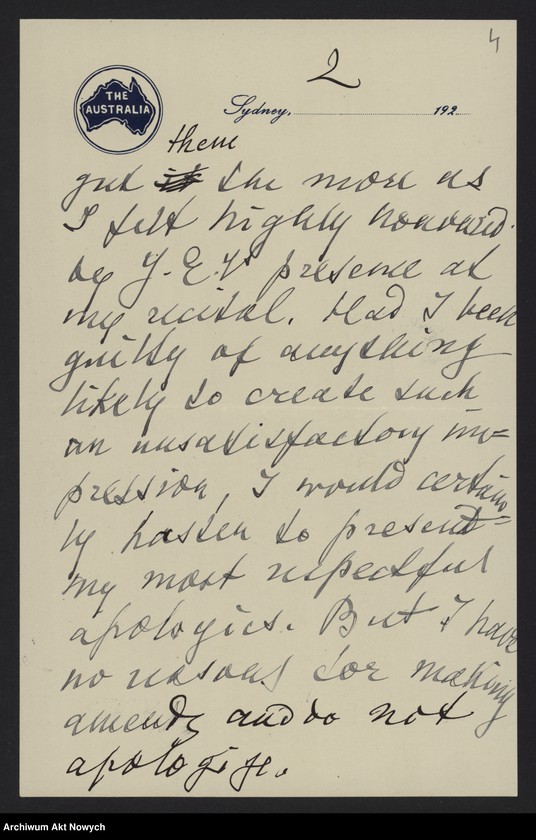 4
2
THE
AUSTRALIA
Sydney, 192
them
gret the more as
I felt highly honoured
by Y. E. Y' presence at
my recital. Had I been
guilty of anything
likely to create such
an unsatisfactory im=
pression, I would certain=
ly hasten to present
my most respectful
apologies. But I have
no reasons for making
amends and do not
apologize.
Archiwum Akt Nowych